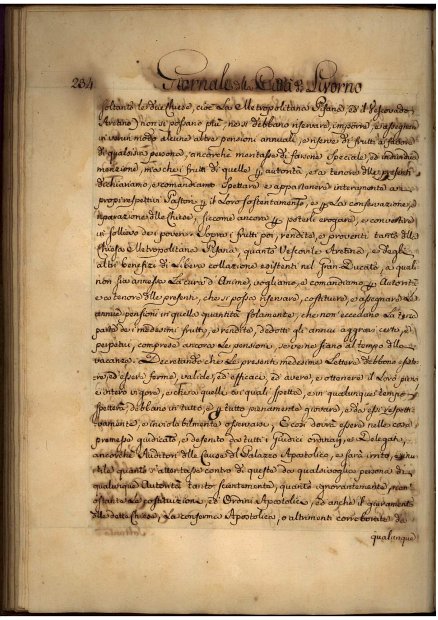 234 Giornale della Città di Livorno
soltanto le due Chiese, cioè La Metropolitana Pisana, ed il Vescovado
Aretino) non si possano più ne si debbano riservare, imporre, e assegnare
in verun modo alcune altre pensioni annuali, e riserve di frutti a favore
di qualsisia persona, ancorche montasse di favore Speciale, ed individua
menzione, ma che i frutti di quelle autorità, e a tenore delle presenti
dichiariamo, e comandiamo Spettare e appartenere interamente a
propri respettivi Pastori il Loro sostentamento, e La conservazione, e
reparazione delle Chiese, siccome ancora poterle erogare, e convertire
in sollievo dei poveri. Sopra i frutti poi, rendite, e proventi tanto della
Chiesa Metropolitana Pisana, quanto Vescovile Aretina, e degli
altri benefizi di Libera collazione esistenti nel Gran Ducato, a quali
non sia annessa La cura d'Anime, vogliamo, e comandiamo Autorità
e a tenore delle presenti, che si possa riservare, costituire, e assegnare Le
annue pensioni in quella quantità solamente, che non eccedano La terza
parte dei medesimi frutti, e rendite, dedotti gli annui aggravi, certi, e
perpetui, comprese ancora Le pensioni, se ve ne siano al tempo della
vacanza. Decretando che Le presenti medesime Lettere debbono essere
, ed essere ferme, valide, ed efficaci, ed avere, e ottenere il Loro pieno
e intero vigore, e che a quelli ai quali spetta, e in qualunque tempo
spetterà, debbano in tutto, e tutto pienamente giovare, e da essi respetti-
vamente, e inviolabilmente osservarsi, E così dovrà essere nelle cose
premesse giudicato, e definito da tutti i Giudici ordinarj, e Delegati,
ancorche Auditori delle Cause del Palazzo Apostolico, e sarà irrito, e
nullo quanto s'attentasse contro di queste da qualsivoglia persona di
qualunque Autorità tanto scientemente, quanto ignorantemente, non
ostante Le costituzioni, ed Ordini Apostolici, ed anche il giuramento
delle dette Chiese, La conferma Apostolica, o altrimenti corroborate da
qualunque